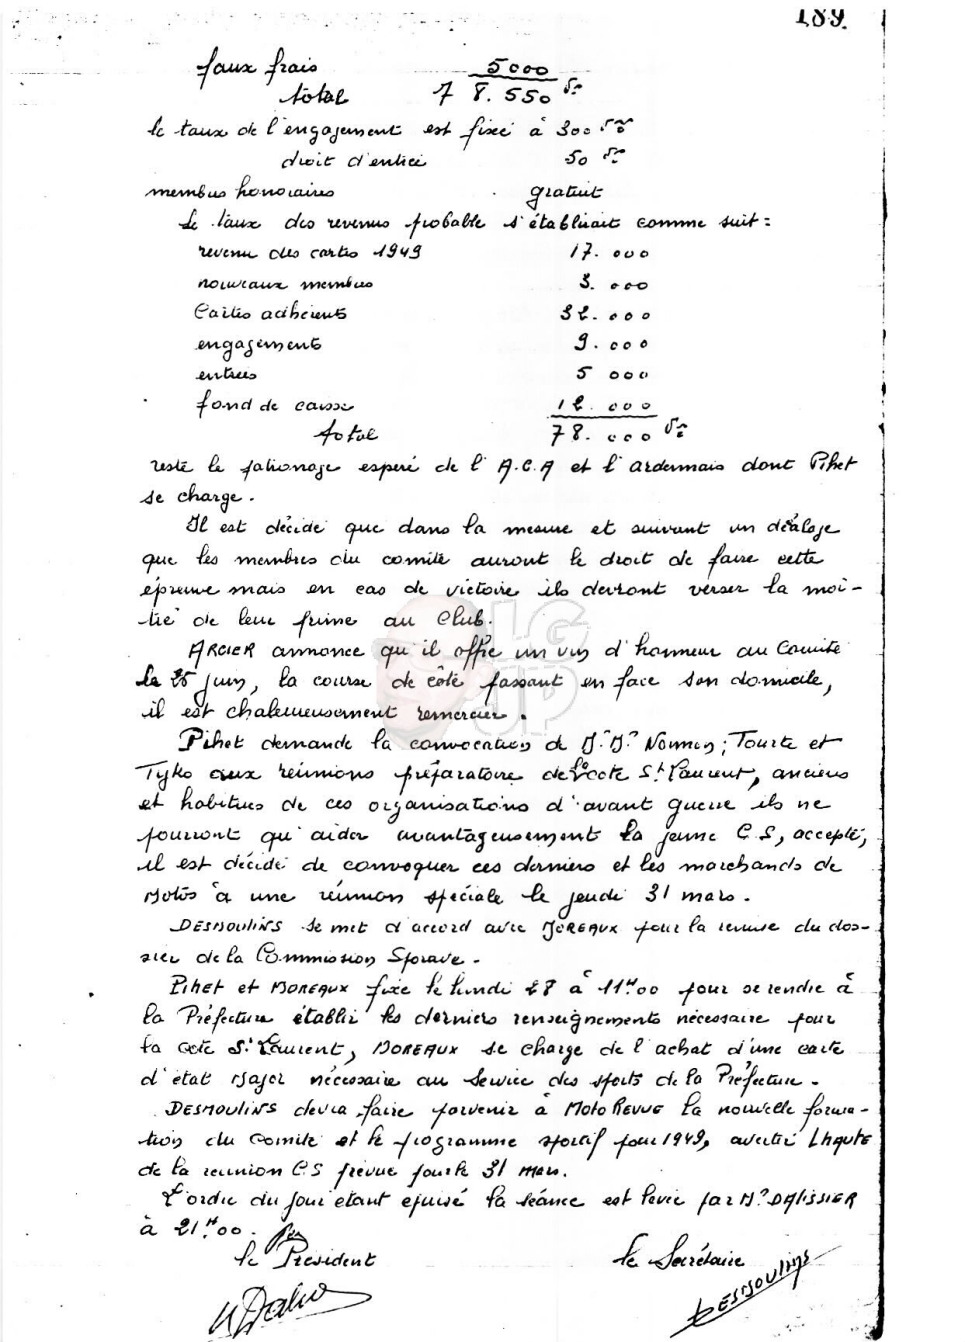 189.
faux frais 5000
total 78.550 frs
le taux de l'engagement est fixé à 300 frs
droit d'entrée 50 frs
membres honoraires gratuit
Le taux des revenus probable s'établirait comme suit :
revenu des cartes 1949 17.000
nouveaux membres 3.000
Cartes adhérents 32.000
engagements 9.000
entrées 5 000
fond de caisse 12.000
total 78.000 frs
reste le patronage espéré de l'A.C.A et l'ardennais dont Pihet
se charge.
Il est décidé que dans la mesure et suivant un
que les membres du comité auront le droit de faire cette
épreuve mais en cas de victoire ils devront verser la moi-
tié de leur prime au Club.
ARCIER annonce qu'il offre un vin d'honneur au Comité
le juin, la course de côte passant en face son domicile,
il est chaleureusement remercier.
Pihet demande la convocation de Mr. Mr. ; Tourte et
Tyko aux réunions préparatoire de la cote St Laurent, anciens
et habitués de ces organisations d'avant guerre ils ne
pourront qu'aider avantageusement la jeune C.S, accepté,
il est décidé de convoquer ces derniers et les marchands de
Motos à une réunion spéciale le jeudi 31 mars.
DESMOULINS se met d'accord avec MOREAUX pour la remise du dos-
sier de la Commission Sporave.
PIHET et MOREAUX fixe le lundi 28 à 11H00 pour se rendre à
la Préfecture établir les derniers renseignements nécessaire pour
la cote St Laurent, MOREAUX se charge de l'achat d'une carte
d'état Major nécessaire au Service des sports de la Préfecture.
DESMOULINS devra faire parvenir à MOTO REVUE la nouvelle forma-
tion du Comité et le programme sportif pour 1949, avertir
de la reunion C.S prévue pour le 31 mars.
L'ordre du jour étant épuisé la séance est levée par Mr DALISSIER
à 21H00.
le Président le Secrétaire
DESMOULINS
LG
JP